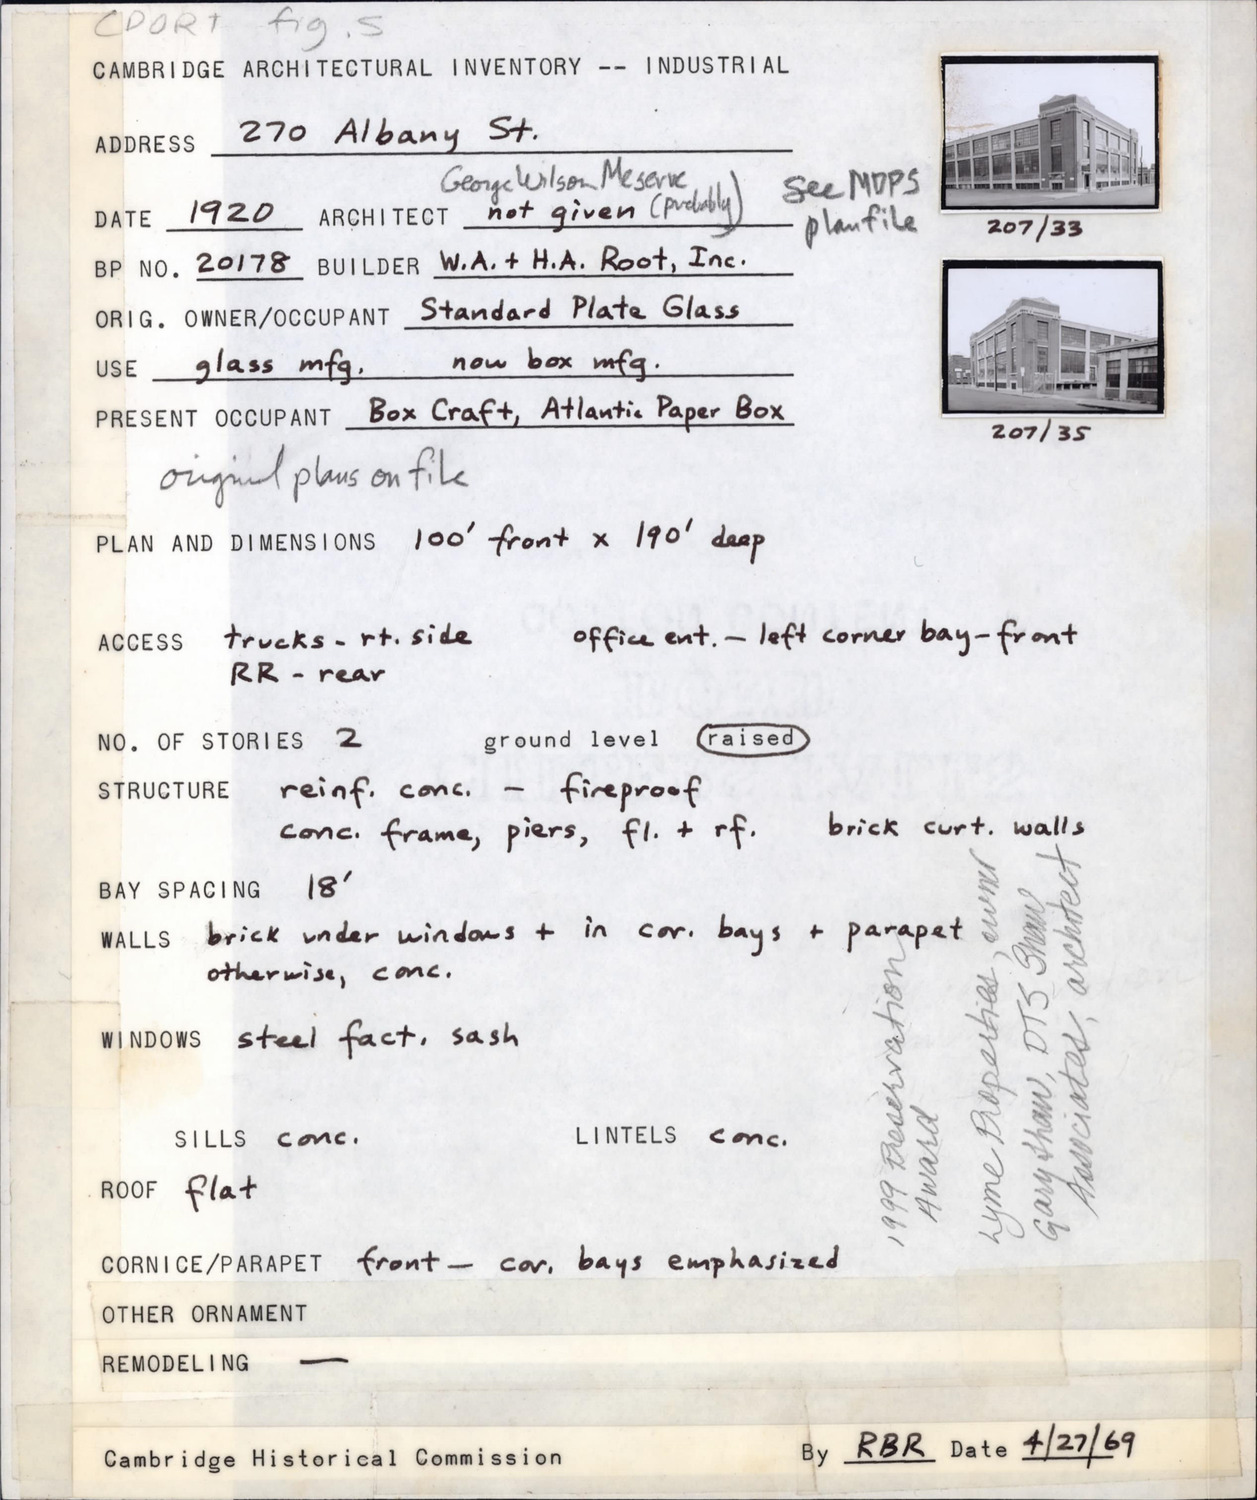 CPORT fig. 5
CAMBRIDGE ARCHITECTURAL INVENTORY -- INDUSTRIAL
ADDRESS 270 Albany St.
George Wilson Meserve
DATE 1920 ARCHITECT not given (probably)
See MDPS
planfile
207/33
BP NO. 20178 BUILDER W.A. + H.A. Root, Inc.
ORIG. OWNER/OCCUPANT Standard Plate Glass
USE glass mfg. now box mfg.
PRESENT OCCUPANT Box Craft, Atlantic Paper Box
207/35
original plans on file
PLAN AND DIMENSIONS 100' front x 190' deep
ACCESS trucks - rt. side office ent. — left corner bay - front
RR - rear
NO. OF STORIES 2 ground level raised
STRUCTURE reinf. conc. — fireproof
conc. frame, piers, fl. + rf. brick curt. walls
BAY SPACING 18'
WALLS brick under windows + in cor. bays + parapet
otherwise, conc.
WINDOWS steel fact. sash
SILLS conc. LINTELS conc.
ROOF flat
CORNICE/PARAPET front — cor. bays emphasized
OTHER ORNAMENT
REMODELING —
1999 Preservation
Award
Lyme Properties, owner
Gary Shaw, DTS Shaw
Associates, architect
Cambridge Historical Commission By RBR Date 4/27/69